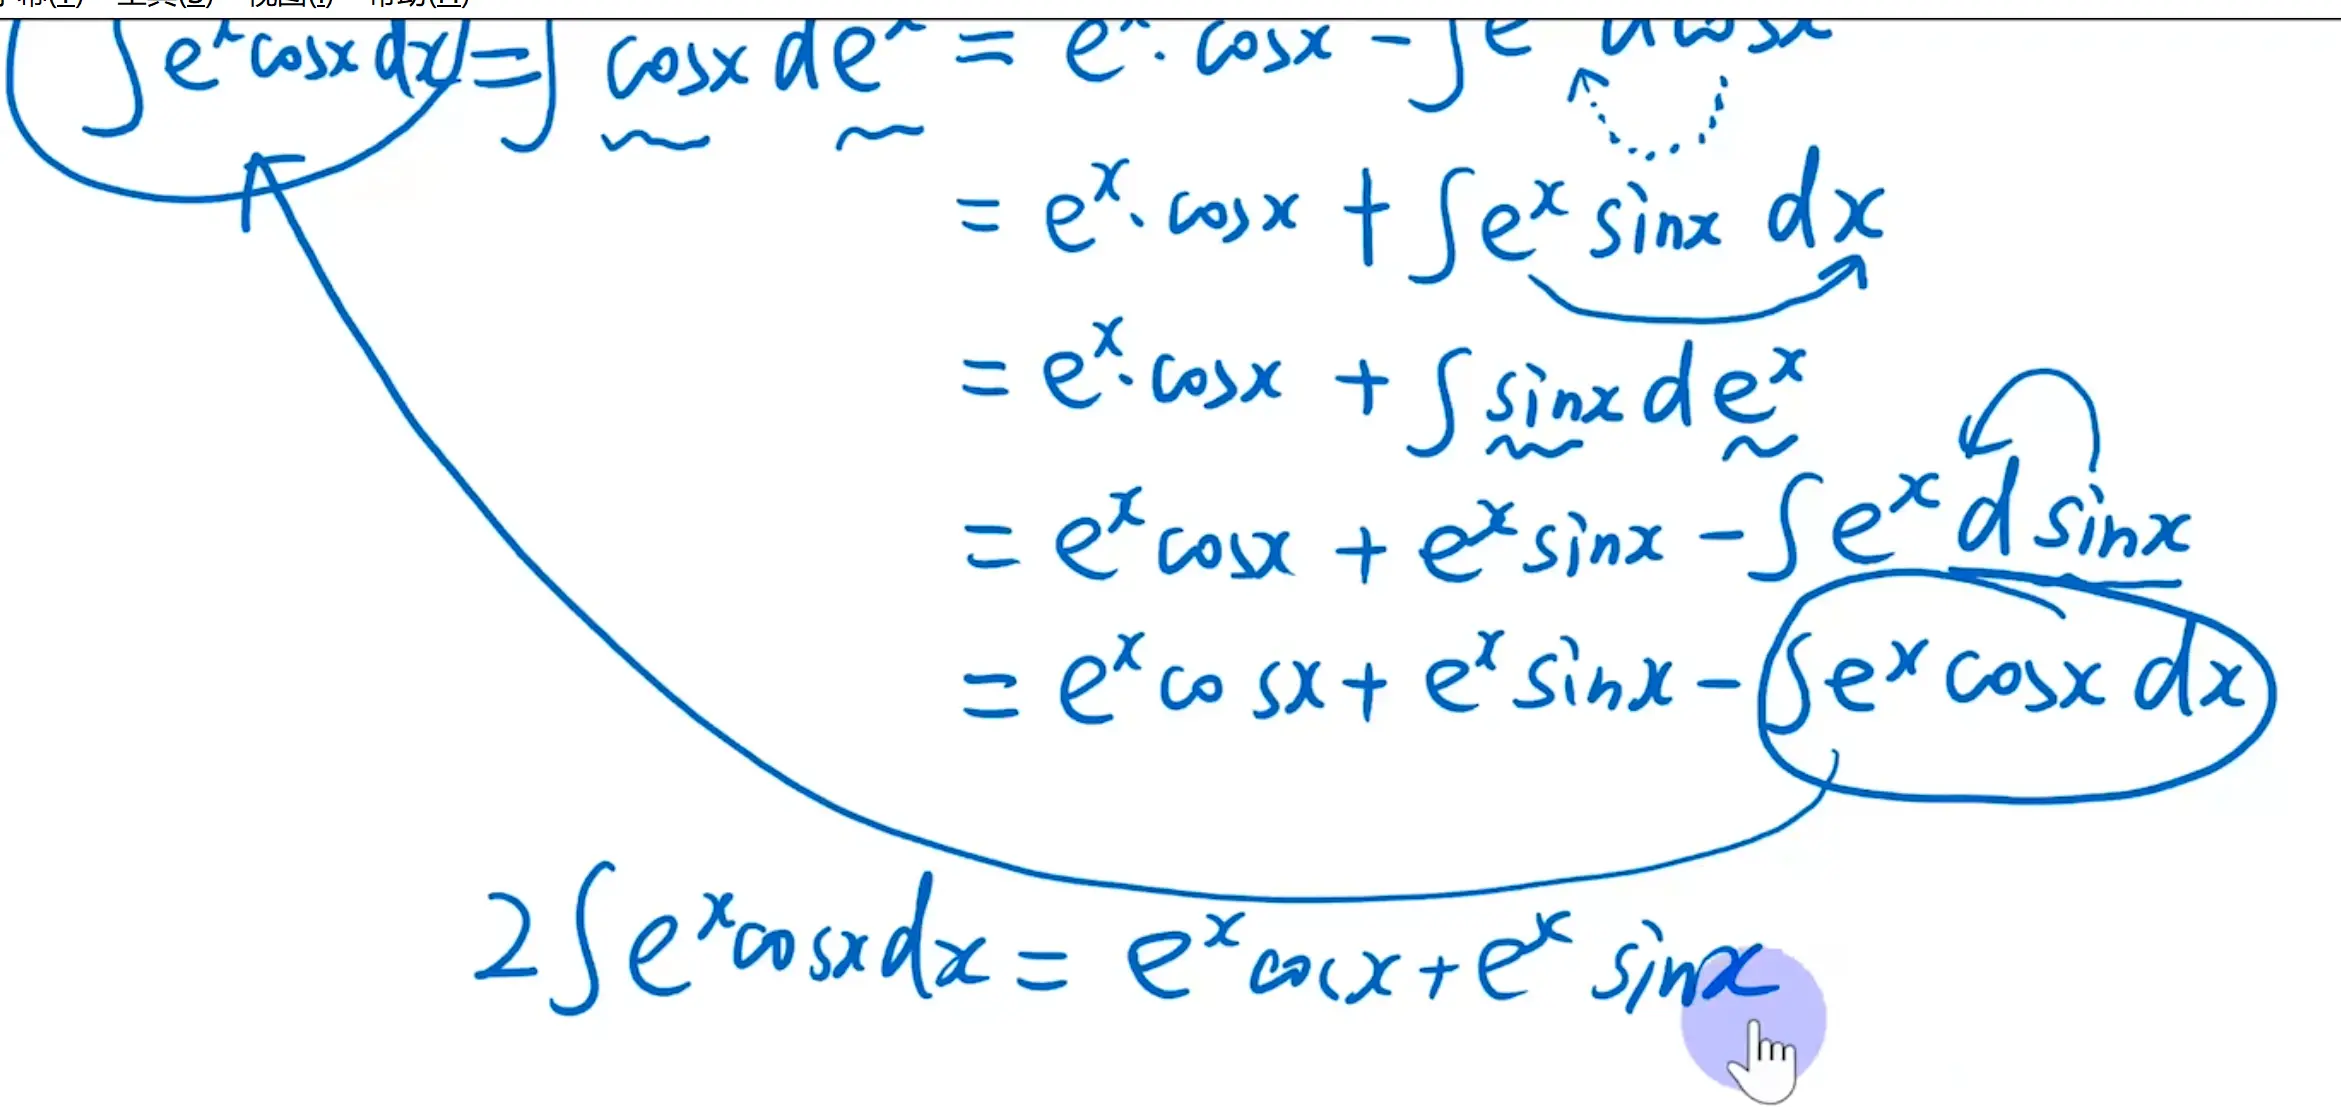 工具(S) 视图(I) 帮助(H)
∫e^x cosx dx = ∫ cosx de^x = e^x · cosx - ∫e^x d cosx
= e^x · cosx + ∫e^x sinx dx
= e^x · cosx + ∫ sinx de^x
= e^x cosx + e^x sinx - ∫e^x d sinx
= e^x cosx + e^x sinx - ∫e^x cosx dx
2∫e^x cosx dx = e^x cosx + e^x sinx